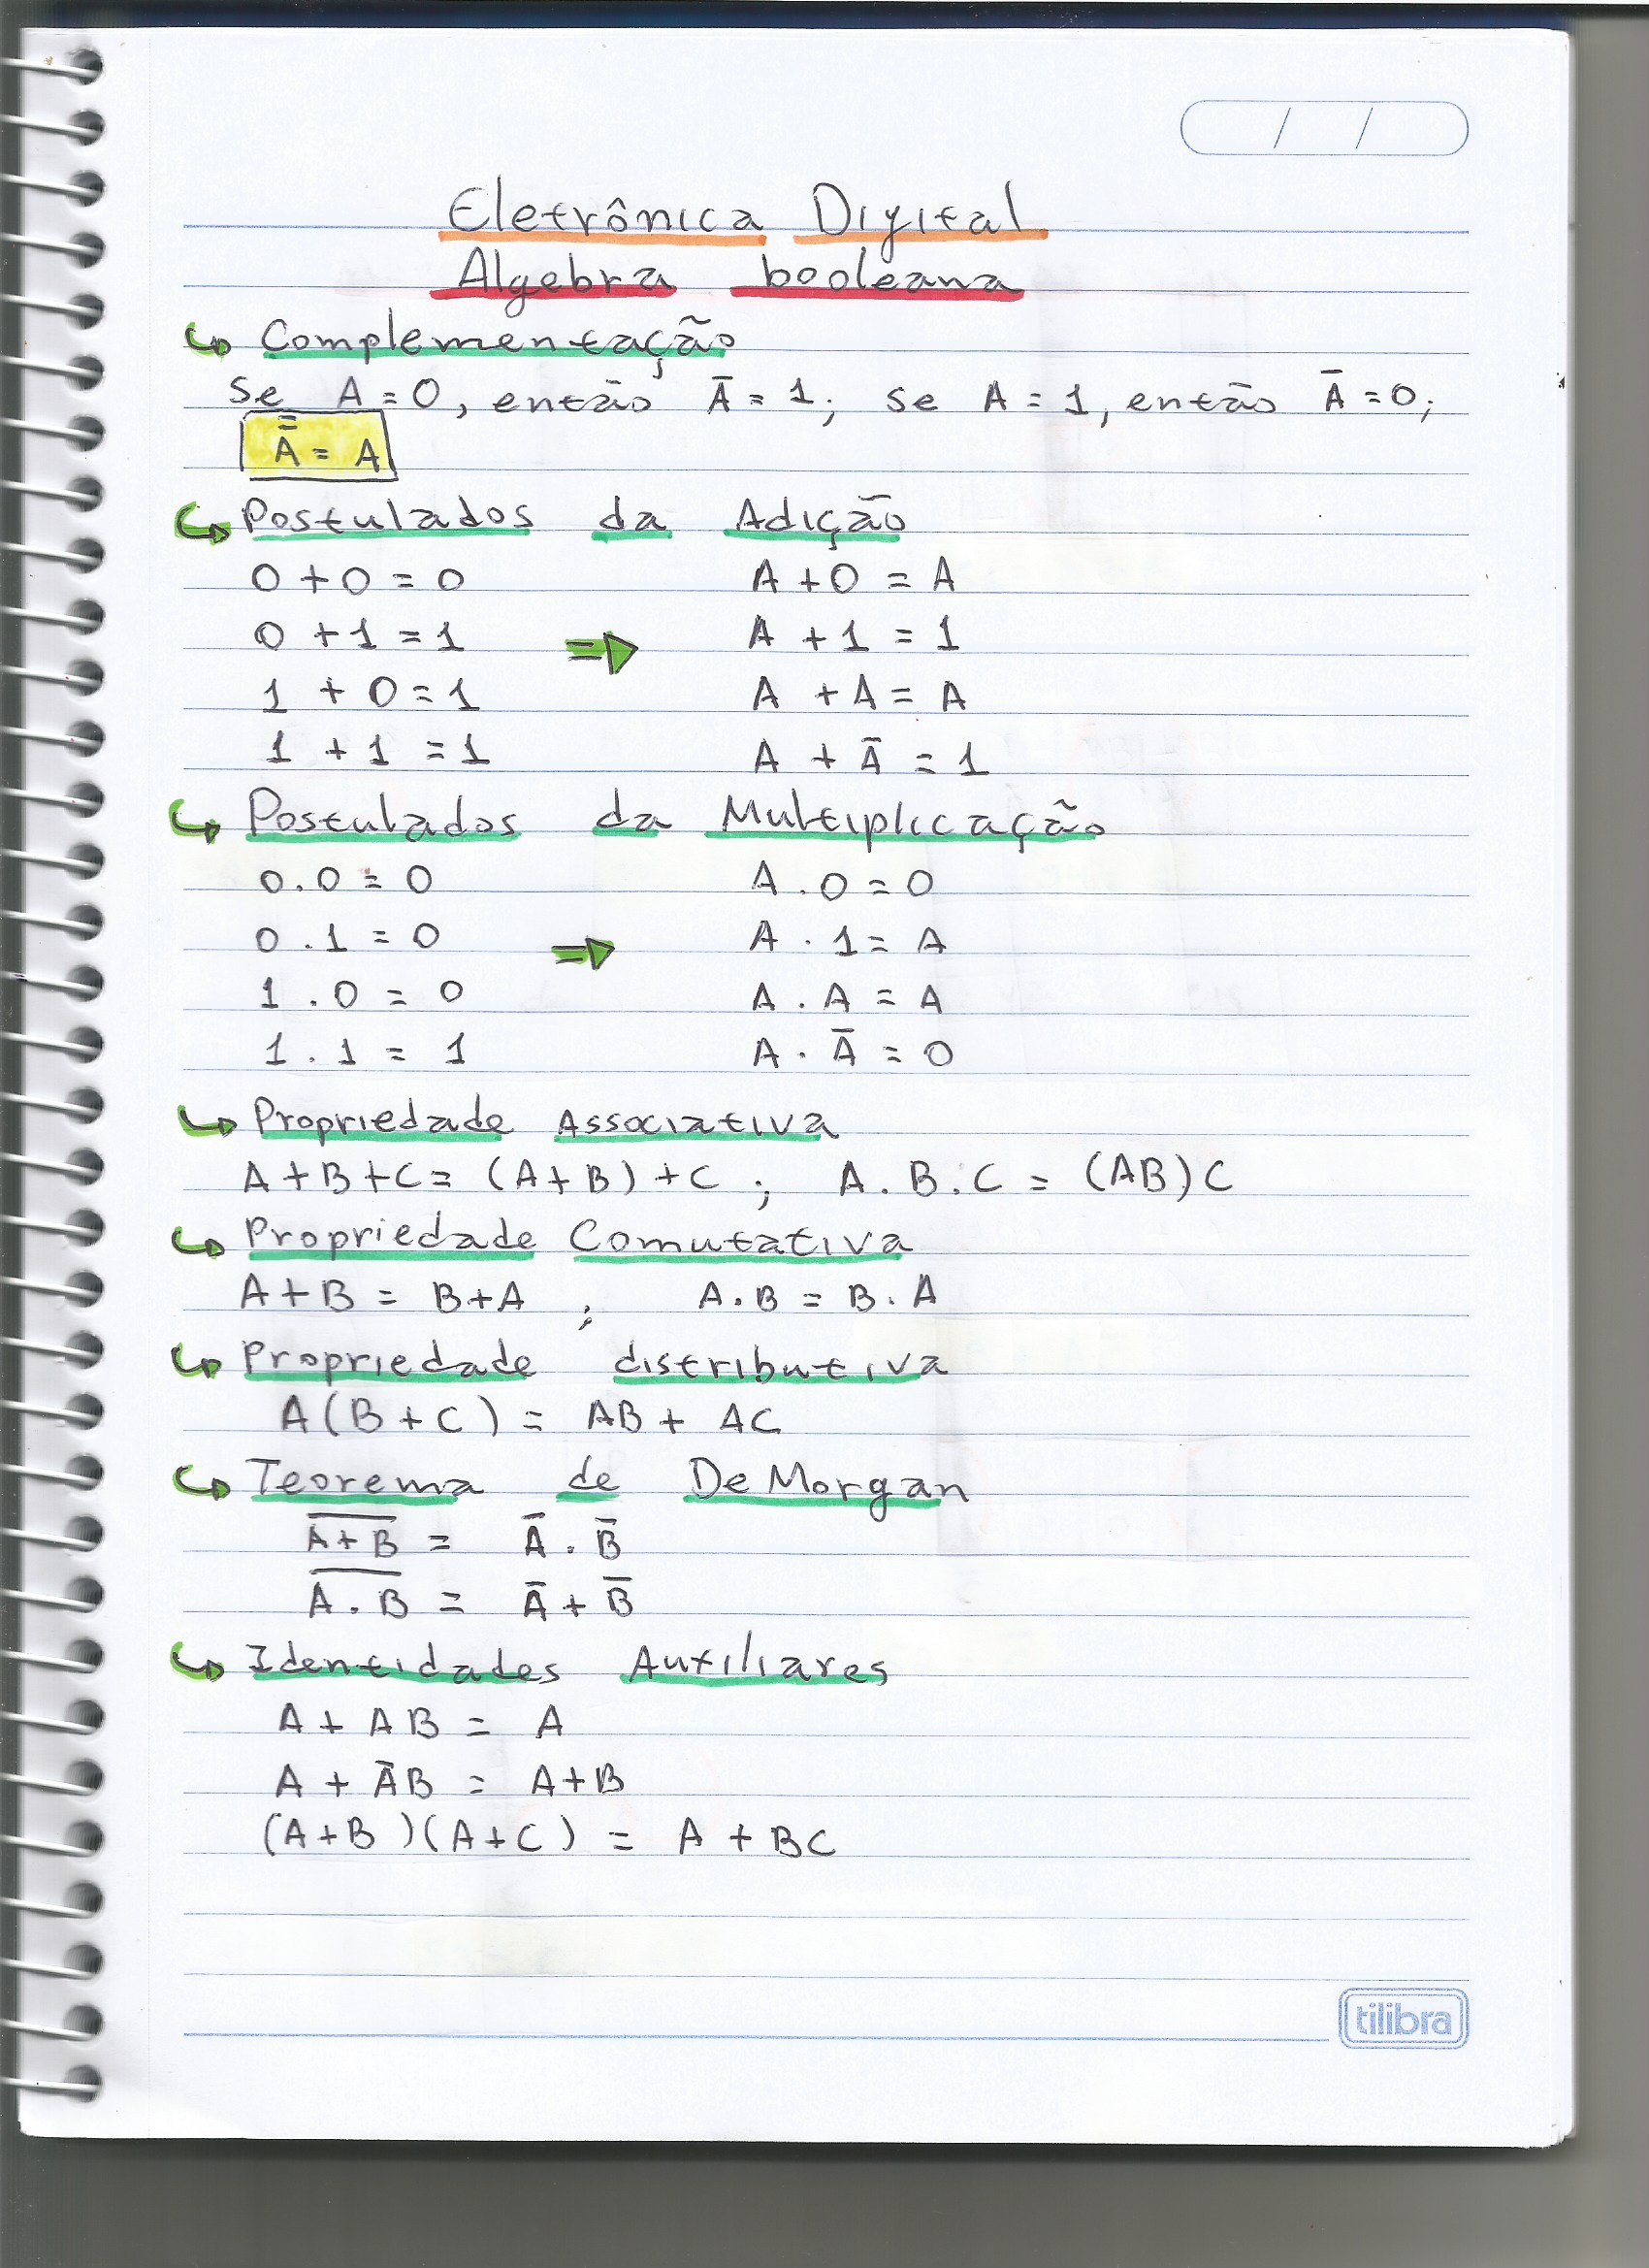 / /
Eletrônica Digital
Algebra booleana
↳ Complementação
Se A = 0, então Ā = 1; se A = 1, então Ā = 0;
A̿ = A
↳ Postulados da Adição
0 + 0 = 0 A + 0 = A
0 + 1 = 1 ⇒ A + 1 = 1
1 + 0 = 1 A + A = A
1 + 1 = 1 A + Ā = 1
↳ Postulados da Multiplicação
0 . 0 = 0 A . 0 = 0
0 . 1 = 0 ⇒ A . 1 = A
1 . 0 = 0 A . A = A
1 . 1 = 1 A . Ā = 0
↳ Propriedade Associativa
A + B + C = (A + B) + C ; A . B . C = (AB)C
↳ Propriedade Comutativa
A + B = B + A ; A . B = B . A
↳ Propriedade distributiva
A(B + C) = AB + AC
↳ Teorema de DeMorgan
A̅+̅B̅ = Ā . B̅
A̅.̅B̅ = Ā + B̅
↳ Identidades Auxiliares
A + AB = A
A + ĀB = A + B
(A + B)(A + C) = A + BC
tilibra